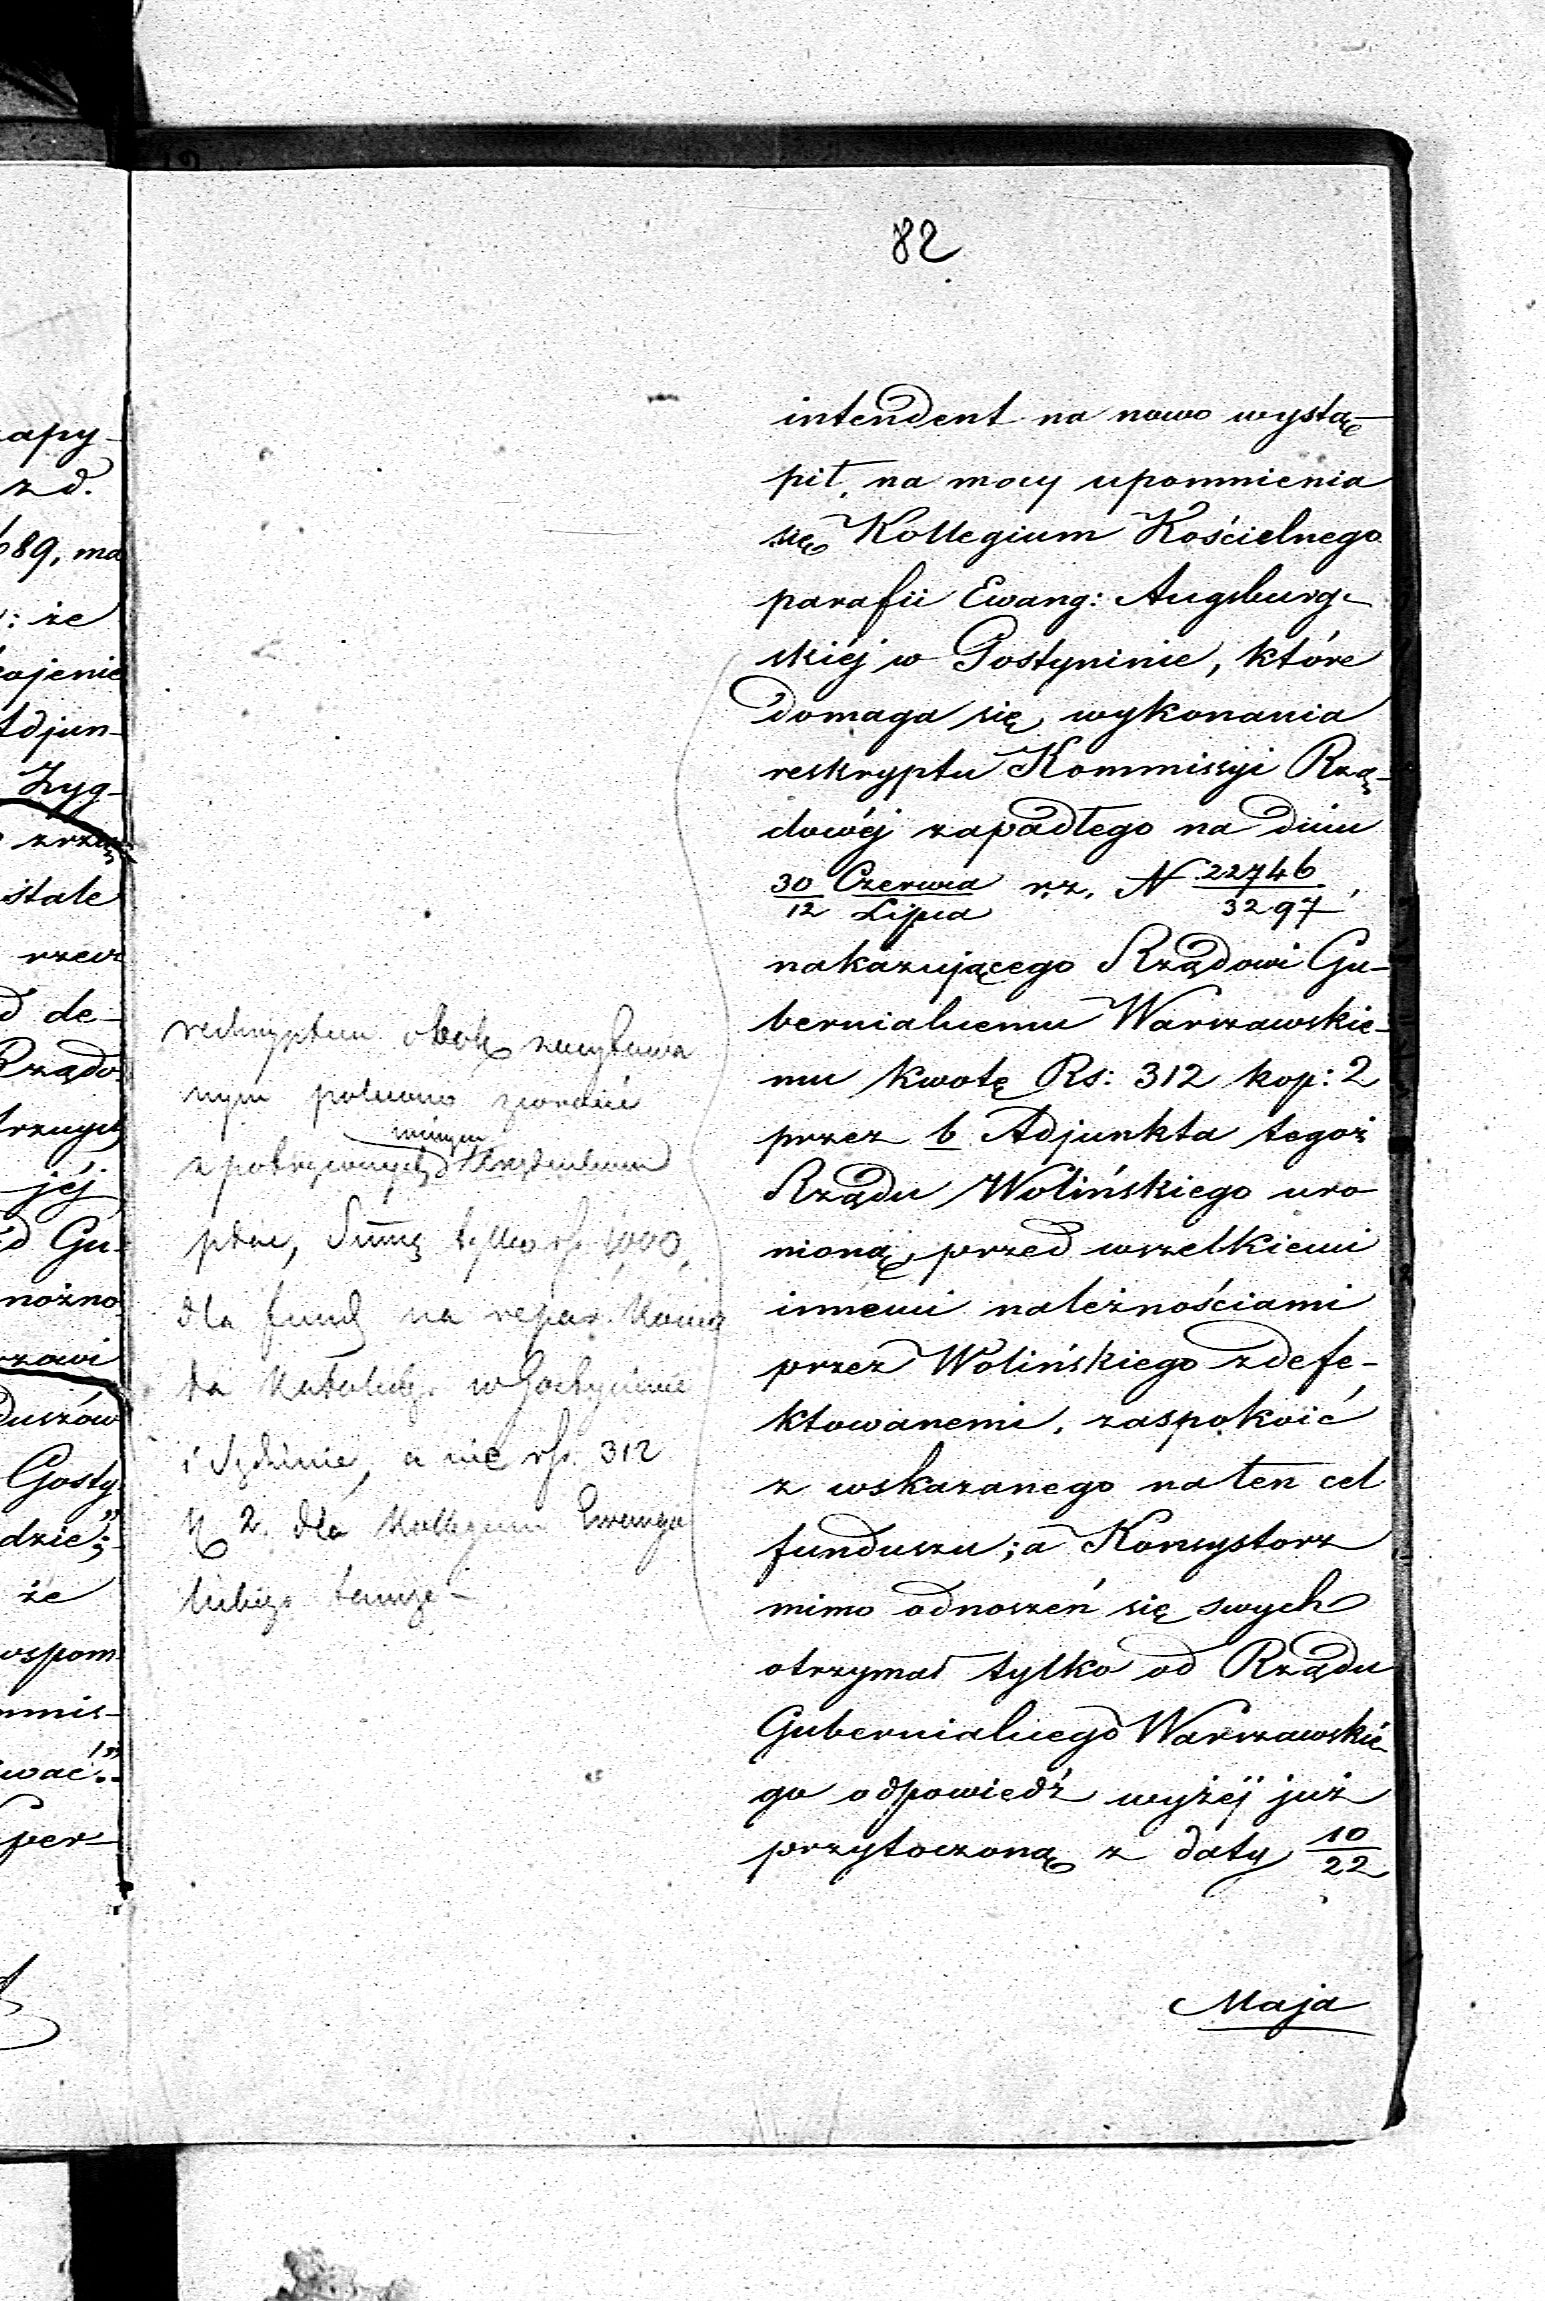 82
intendent na nowo wystą-
pił, na mocy upomnienia
się Kollegium Kościelnego
parafii Ewang: Augsburg-
skiéj w Gostyninie, które
domaga się wykonania
reskryptu Kommissyi Rzą-
dowéj zapadłego na dniu
30/12 Czerwca/Lipca r.z. N 22746/3297,
nakazującego Rządowi Gu-
bernialnemu Warszawskie-
mu kwotę Rs: 312 kop: 2
przez b Adjunkta tegoż
Rządu Wolińskiego uro-
nioną, przed wszelkiemi
innemi należnościami
przez Wolińskiego zdefe-
ktowanemi, zaspokoić
z wskazanego na ten cel
funduszu; a Konsystorz
mimo odnoszeń się swych
otrzymał tylko od Rządu
Gubernialnego Warszawskie-
go odpowiedź wyżéj już
przytoczoną z daty 10/22
Maja
obok zacytowa
nym polecono zwrócić
innym
Summę tylko rs. 1000,
dla fund na repar. Kościo
ła Katolick. w Gostyninie
i a nie rs. 312
k 2. dla Kollegium Ewange
lickiego tamże-
apy-
z d.
689, ma
: że
ojenie
Adjun-
Zyg-
stale
rzecz
d de-
Rządo
trznych
jéj
d Gu-
nożno
rzowi
duszów
Gosty
dzie";
że
wspom
mmis-
wać"
per-